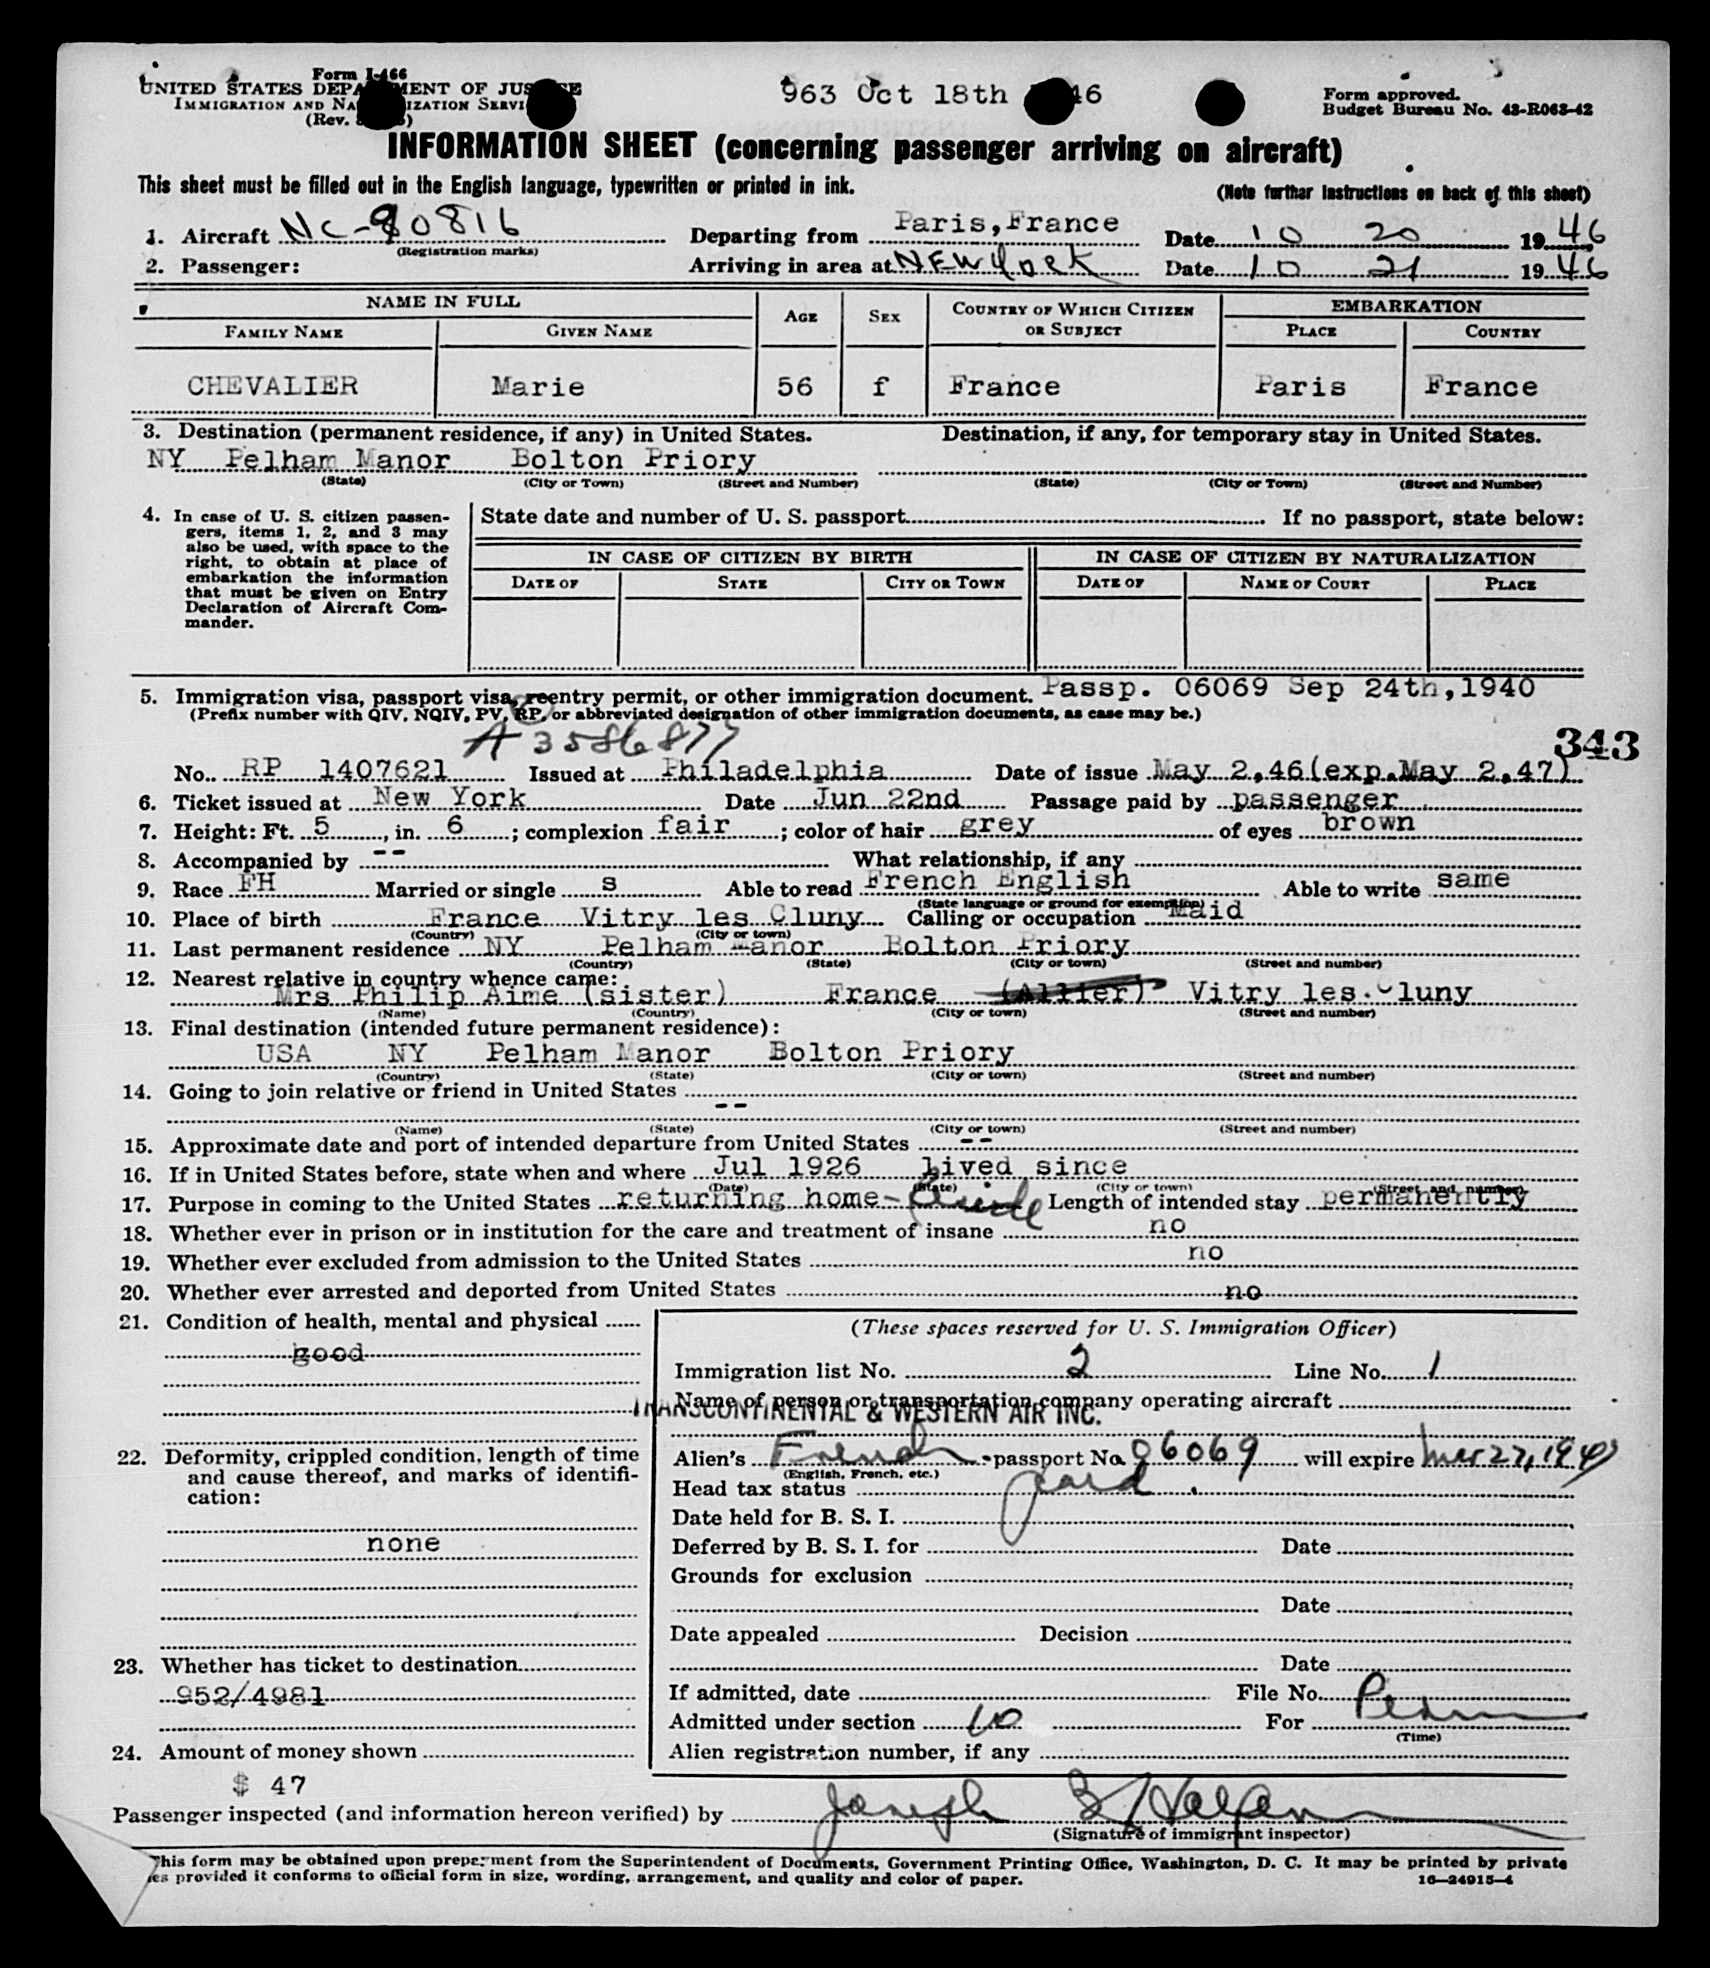 Form I-466
UNITED STATES DEPARTMENT OF JUSTICE
IMMIGRATION AND NATURALIZATION SERVICE
(Rev.
963 Oct 18th 46
Form approved.
Budget Bureau No. 43-R063-42
INFORMATION SHEET (concerning passenger arriving on aircraft)
This sheet must be filled out in the English language, typewritten or printed in ink.
(Note further instructions on back of this sheet)
1. Aircraft NC-90816 Departing from Paris,France Date 10 20 1946
(Registration marks)
2. Passenger: Arriving in area at NEW YORK Date 10 21 1946
NAME IN FULL AGE SEX COUNTRY OF WHICH CITIZEN OR SUBJECT EMBARKATION
FAMILY NAME GIVEN NAME PLACE COUNTRY
CHEVALIER Marie 56 f France Paris France
3. Destination (permanent residence, if any) in United States. Destination, if any, for temporary stay in United States.
NY Pelham Manor Bolton Priory
(State) (City or Town) (Street and Number) (State) (City or Town) (Street and Number)
4. In case of U. S. citizen passen-
gers, items 1, 2, and 3 may
also be used, with space to the
right, to obtain at place of
embarkation the information
that must be given on Entry
Declaration of Aircraft Com-
mander.
State date and number of U. S. passport If no passport, state below:
IN CASE OF CITIZEN BY BIRTH IN CASE OF CITIZEN BY NATURALIZATION
DATE OF STATE CITY OR TOWN DATE OF NAME OF COURT PLACE
5. Immigration visa, passport visa, reentry permit, or other immigration document. Passp. 06069 Sep 24th,1940
(Prefix number with QIV, NQIV, PV, RP, or abbreviated designation of other immigration documents, as case may be.)
A 3586877
343
No. RP 1407621 Issued at Philadelphia Date of issue May 2,46(exp.May 2,47)
6. Ticket issued at New York Date Jun 22nd Passage paid by passenger
7. Height: Ft. 5, in. 6; complexion fair; color of hair grey of eyes brown
8. Accompanied by -- What relationship, if any
9. Race FH Married or single s Able to read French English Able to write same
(State language or ground for exemption)
10. Place of birth France Vitry les Cluny Calling or occupation Maid
(Country) (City or town)
11. Last permanent residence NY Pelham Manor Bolton Priory
(Country) (State) (City or town) (Street and number)
12. Nearest relative in country whence came:
Mrs Philip Aime (sister) France (Allier) Vitry les Cluny
(Name) (Country) (City or town) (Street and number)
13. Final destination (intended future permanent residence):
USA NY Pelham Manor Bolton Priory
(Country) (State) (City or town) (Street and number)
14. Going to join relative or friend in United States
--
(Name) (State) (City or town) (Street and number)
15. Approximate date and port of intended departure from United States --
16. If in United States before, state when and where Jul 1926 Lived since
(Date) (State) (City or town) (Street and number)
17. Purpose in coming to the United States returning home- Length of intended stay permanently
18. Whether ever in prison or in institution for the care and treatment of insane no
19. Whether ever excluded from admission to the United States no
20. Whether ever arrested and deported from United States no
21. Condition of health, mental and physical
good
22. Deformity, crippled condition, length of time
and cause thereof, and marks of identifi-
cation:
none
23. Whether has ticket to destination
952/4981
24. Amount of money shown
$ 47
(These spaces reserved for U. S. Immigration Officer)
Immigration list No. 2 Line No. 1
Name of person or transportation company operating aircraft
TRANSCONTINENTAL & WESTERN AIR INC.
Alien's French passport No. 06069 will expire Mar 27, 194
(English, French, etc.)
Head tax status
Date held for B. S. I.
Deferred by B. S. I. for Date
Grounds for exclusion
Date
Date appealed Decision
Date
If admitted, date File No.
Admitted under section 10 For Perm
(Time)
Alien registration number, if any
Passenger inspected (and information hereon verified) by Joseph
(Signature of immigrant inspector)
This form may be obtained upon prepayment from the Superintendent of Documents, Government Printing Office, Washington, D. C. It may be printed by private
provided it conforms to official form in size, wording, arrangement, and quality and color of paper.
16—24915-4